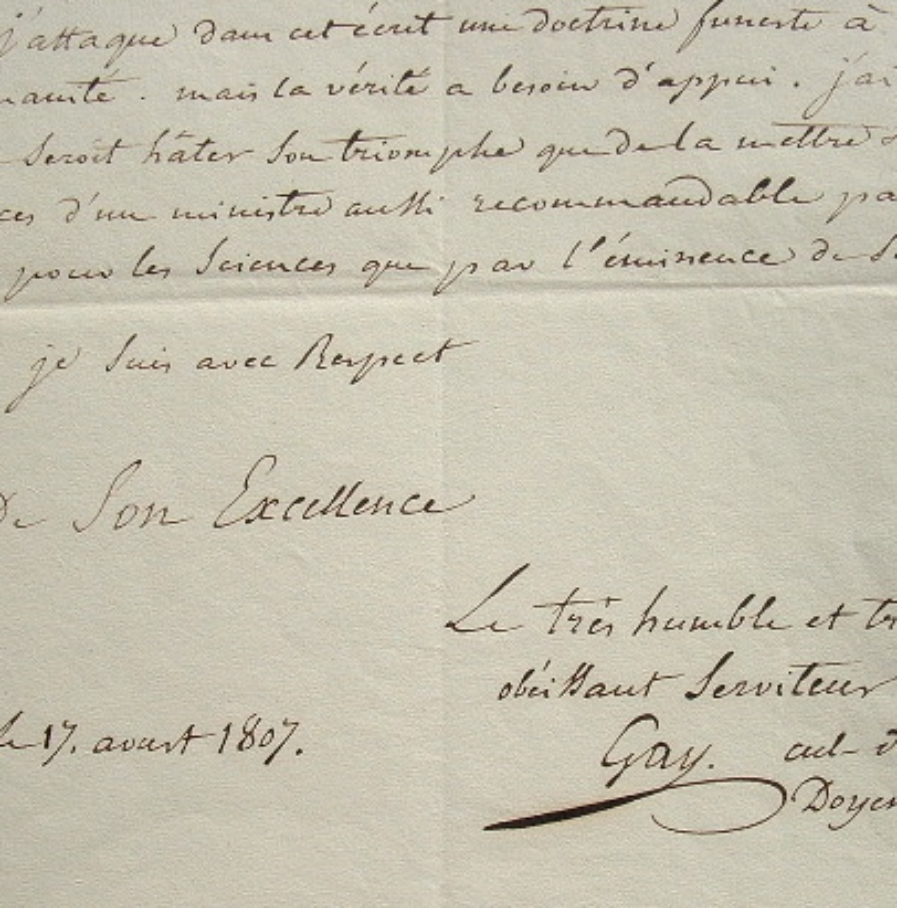 j'attaque dans cet écrit une doctrine funeste à
manité. mais la vérité a besoin d'appui. j'ai
seroit hâter son triomphe que de la mettre
ces d'un ministre aussi recommandable pa
pour les Sciences que par l'éminence de S
je suis avec Respect
De Son Excellence
Le très humble et tr
obéissant Serviteur
le 17. aoust 1807.
Gay.
Doyen